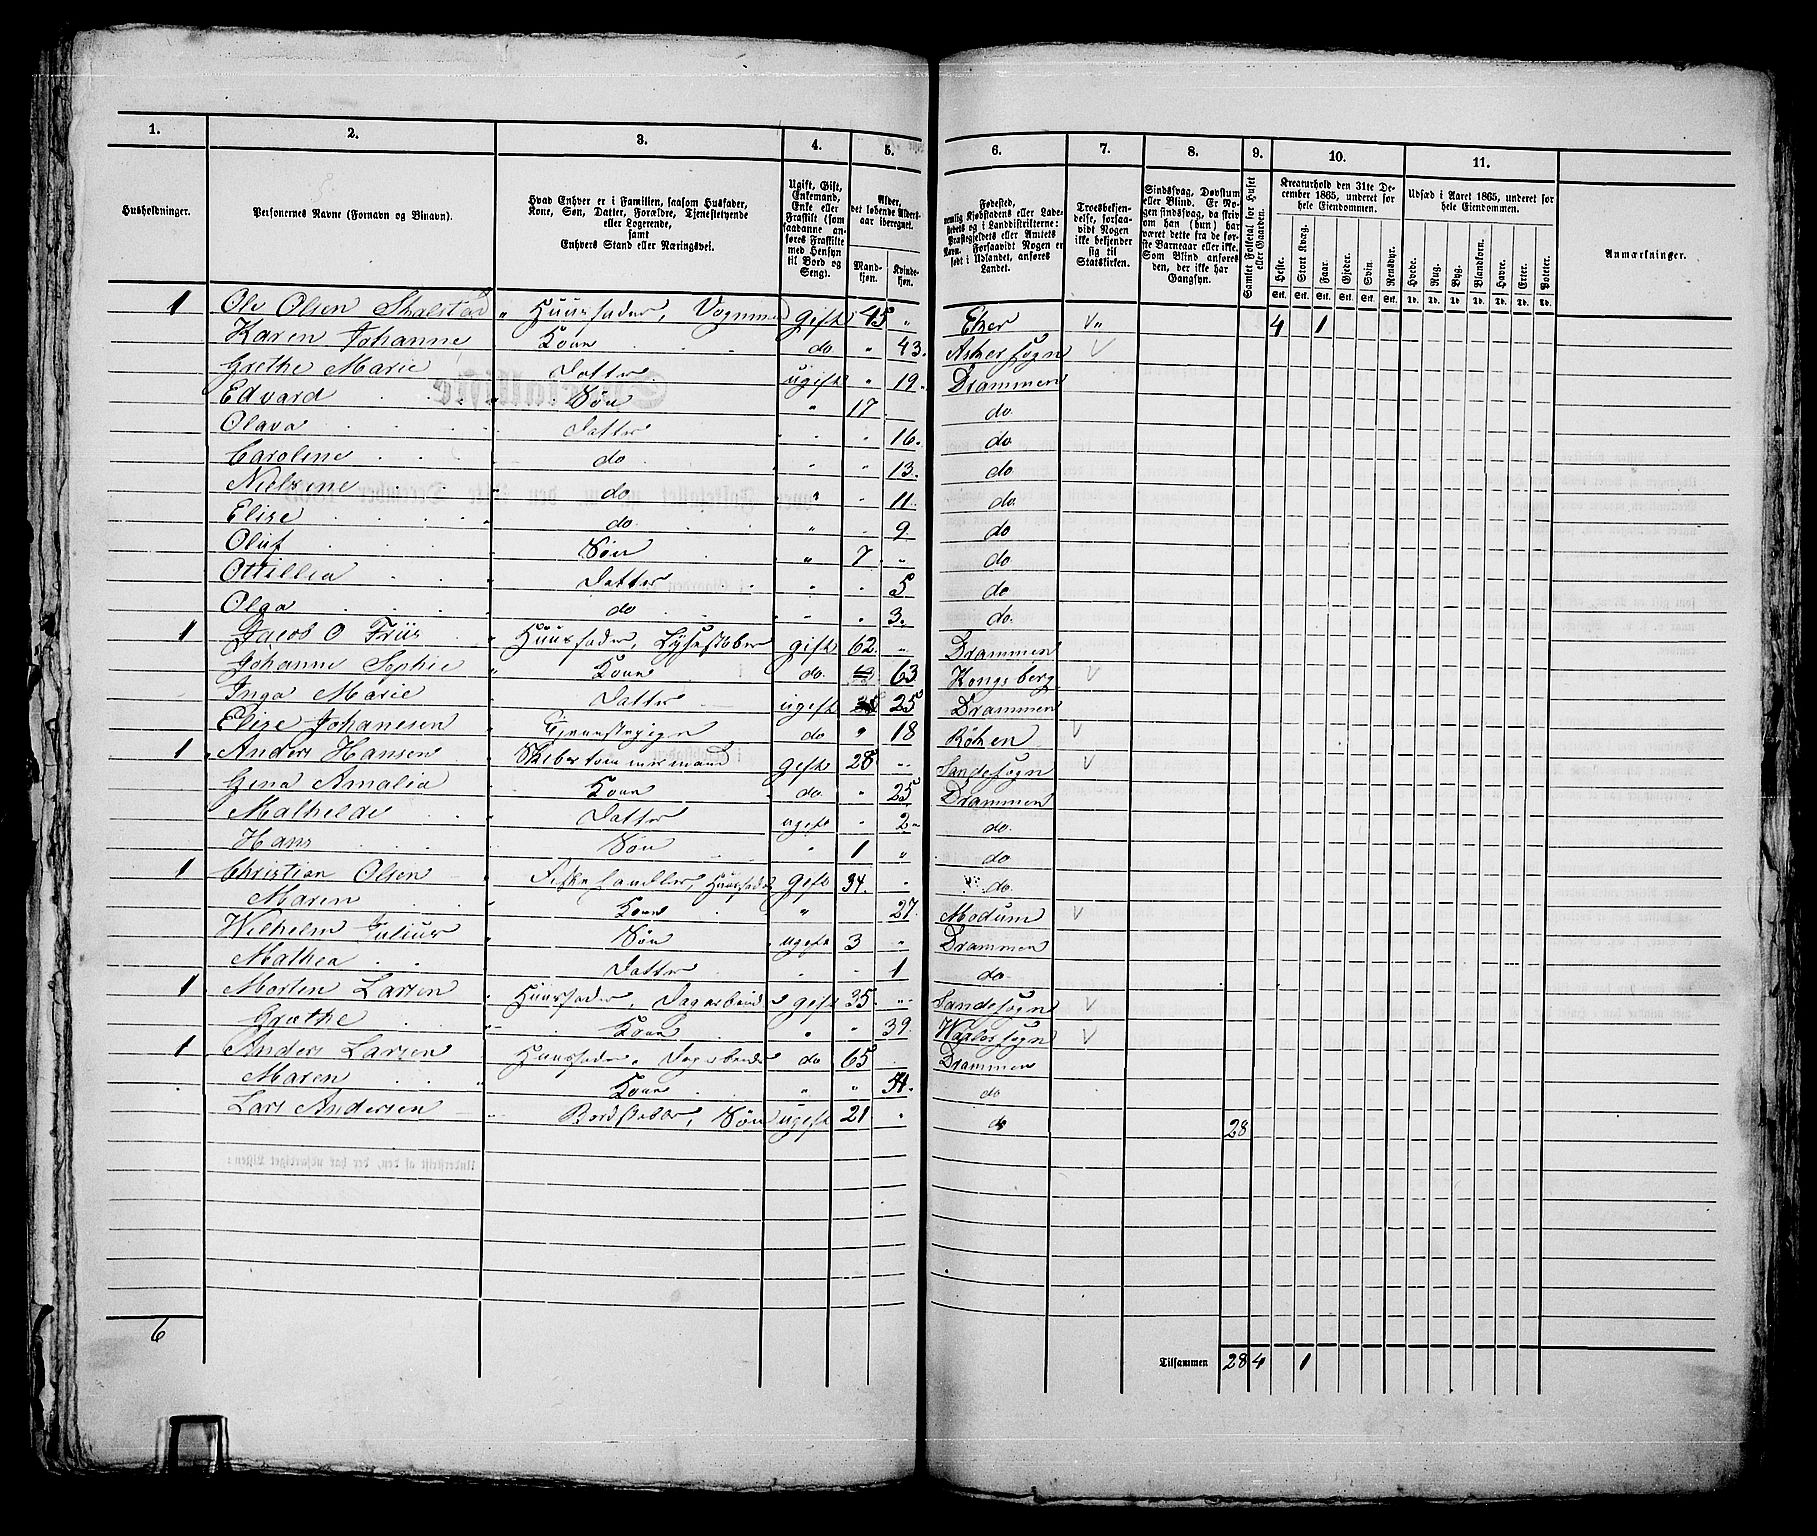 1. 2. 3. 4. 5. 6. 7. 8. 9. 10. 11.
Husholdninger.
Personernes Navne (Fornavn og Binavn).
Hvad Enhver er i Familien, saasom Husfader,
Kone, Søn, Datter, Forældre, Tjenestetyende
eller Logerende,
samt
Enhvers Stand eller Næringsvei.
Ugift, Gift,
Enkemand,
Enke eller
Fraskilt (som
saadanne an-
føres Fraskilte
med Hensyn
til Bord og
Seng).
Alder,
det løbende Alders-
aar iberegnet.
Mand-
kjøn.
Kvinde-
kjøn.
Fødested,
nemlig Kjøbstadens eller Lade-
stedets og i Landdistrikterne:
Præstegjeldets eller Amtets
Navn. Forsaavidt Nogen er
født i Udlandet, anføres
Landet.
Troesbekjen-
delse, forsaa-
vidt Nogen
ikke bekjender
sig til
Statskirken.
Sindssvag, Døvstum
eller Blind. Er No-
gen sindssvag, da skriv
om han (hun) har
været dette fra de før-
ste Barneaar eller ikke.
Som Blind anføres
den, der ikke har
Gangsyn.
Samlet Folketal for Huset
eller Gaarden.
Kreaturhold den 31te De-
cember 1865, underet for
hele Eiendommen.
Heste. Stort Kvæg. Faar. Gjeder. Svin. Rensdyr.
Stk. Stk. Stk. Stk. Stk. Stk.
Udsæd i Aaret 1865, underet for
hele Eiendommen.
Hvede. Rug. Byg. Blandkorn. Havre. Erter. Poteter.
Td. Td. Td. Td. Td. Td. Td.
Anmærkninger.
1 Ole Olsen " Huusfader, Vognmand gift 45 " Eker V" 4 1
Karen Johanne Kone do " 43. Asker sogn V
Grethe Marie Datter ugift " 19. Drammen
Edvard " Søn " 17 do
Olava Datter " " 16. do
Caroline do " " 13. do
Nielsine " do " " 11. do
Elise " do " " 9 do
Oluf Søn " 7 " do
Ottillia " Datter " " 5 do
Olga do " " 3. do
1 Jacob O Friis " Huusfader, Lysestøber gift 62 " Drammen
Johanne Sophie " Kone do 63 Kongsberg V
Inga Marie Datter ugift 25 Drammen
Elise Johanesen Tjenestepige do " 18 Röken V
1 Anders Hansen " Skibstømmermand gift 28 " Sandesogn V
Gina Amalia Kone do " 25 Drammen
Mathilde Datter ugift " 2 " do.
Hans Søn " 1 " do
1 Christian Olsen " Fiskehandler, Huusfader gift 34. " do.
Maren " Kone " 27. Modum V
Wilhelm Julius " Søn ugift 3 " Drammen
Mathea Datter " " 1 do
1 Morten Larsen " Huusfader, Dagarbeider gift 35 " Sandesogn V
Grethe " Kone " " 39. V
1 Anders Larsen Huusfader, Dagarbeider do 65 Drammen
Maren " Kone " " 54. do
Lars Andersen " Søn ugift 21 " do 28
6
Tilsammen 28 4 1